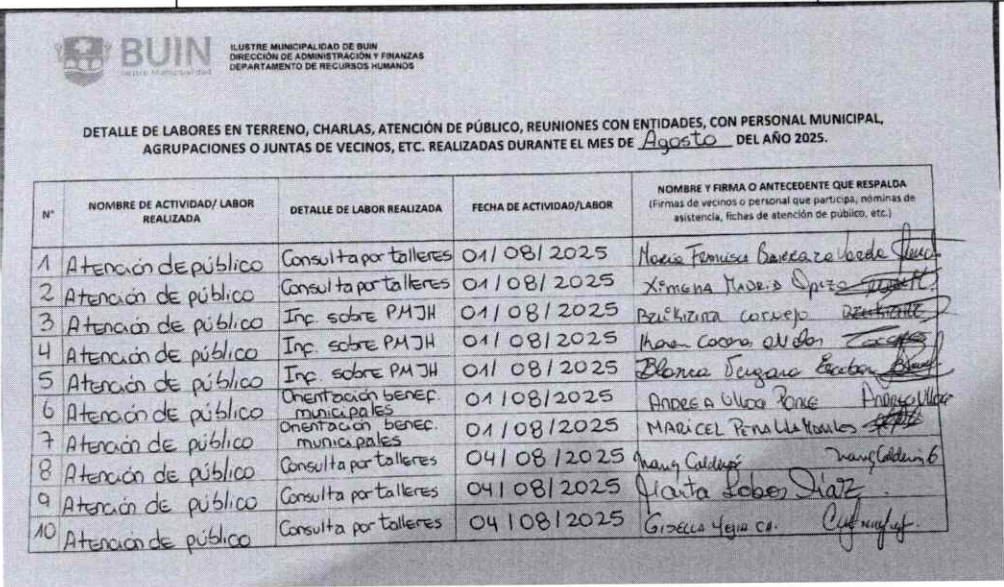 BUIN
Ilustre Municipalidad
ILUSTRE MUNICIPALIDAD DE BUIN
DIRECCIÓN DE ADMINISTRACIÓN Y FINANZAS
DEPARTAMENTO DE RECURSOS HUMANOS
DETALLE DE LABORES EN TERRENO, CHARLAS, ATENCIÓN DE PÚBLICO, REUNIONES CON ENTIDADES, CON PERSONAL MUNICIPAL,
AGRUPACIONES O JUNTAS DE VECINOS, ETC. REALIZADAS DURANTE EL MES DE Agosto DEL AÑO 2025.
N° NOMBRE DE ACTIVIDAD/ LABOR REALIZADA DETALLE DE LABOR REALIZADA FECHA DE ACTIVIDAD/LABOR NOMBRE Y FIRMA O ANTECEDENTE QUE RESPALDA
(Firmas de vecinos o personal que participa, nóminas de
asistencia, fichas de atención de público, etc.)
1 Atención de público Consulta por talleres 01/08/2025 Maria
2 Atención de público Consulta por talleres 01/08/2025 Ximena Madrid
3 Atención de público Inf. sobre PMJH 01/08/2025 Cornejo
4 Atención de público Inf. sobre PMJH 01/08/2025
5 Atención de público Inf. sobre PMJH 01/08/2025 Blanca Vergara
6 Atención de público Orientación benef. municipales 01/08/2025 ANDREA Ulloa Ponce Andrea Ulloa
7 Atención de público Orientación benef. municipales 01/08/2025 MARICEL Morales
8 Atención de público Consulta por talleres 04/08/2025
9 Atención de público Consulta por talleres 04/08/2025 Lobos Díaz
10 Atención de público Consulta por talleres 04/08/2025 GISELLA Mejia